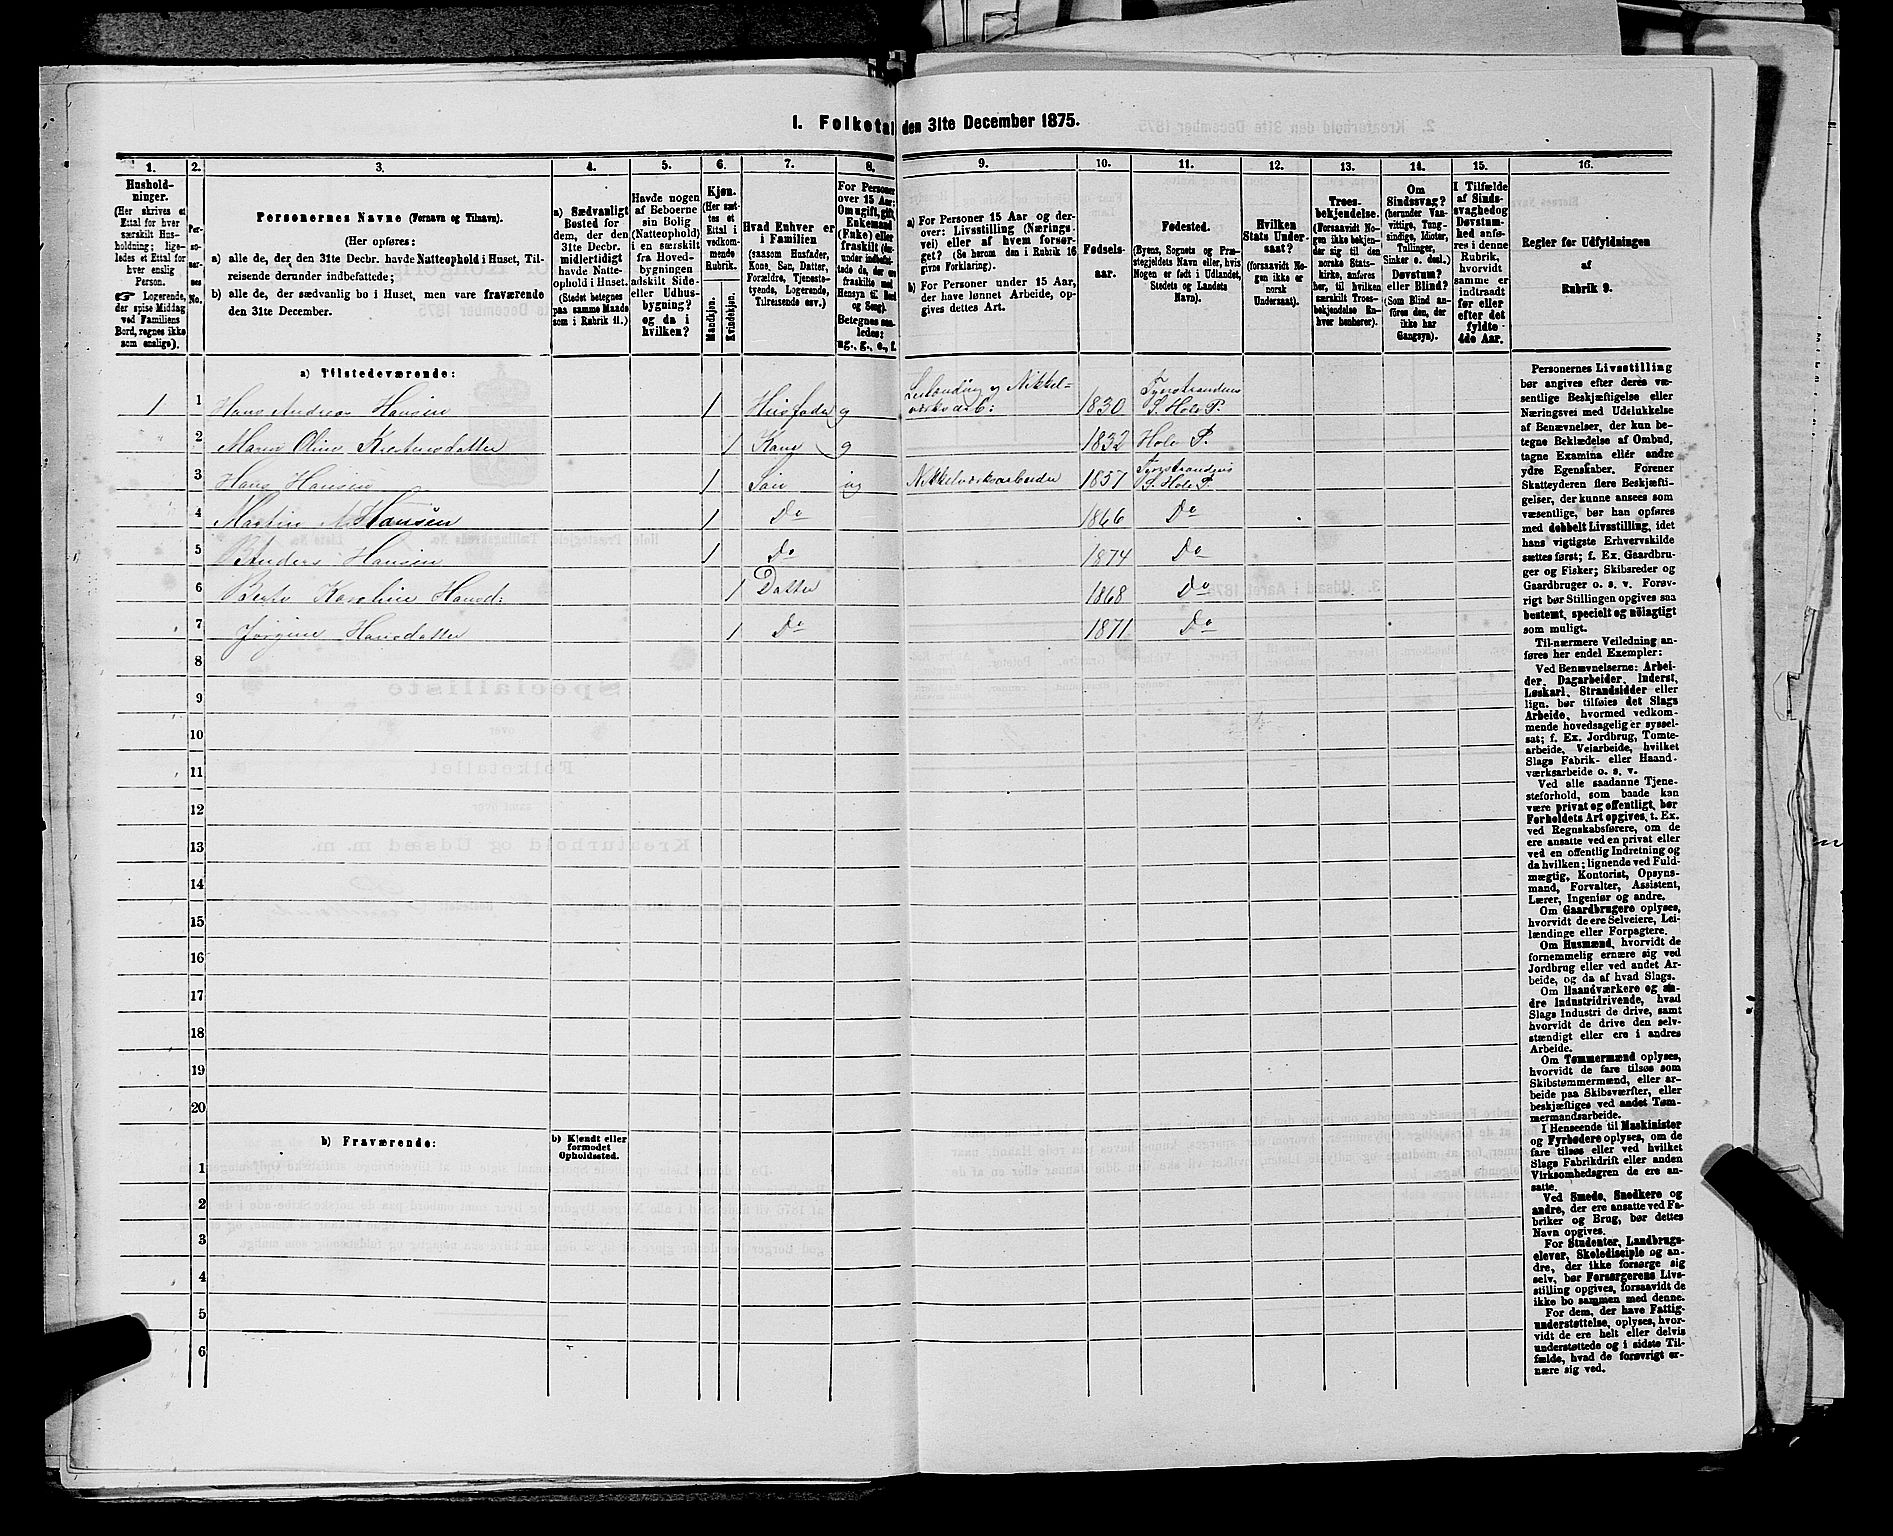 1. Folketal den 31te December 1875.
1. 2. 3. 4. 5. 6. 7. 8. 9. 10. 11. 12. 13. 14. 15. 16.
Hushold-
ninger.
(Her skrives et
Ettal for hver
særskilt Hus-
holdning; lige-
ledes et Ettal for
hver enslig
Person.
☞ Logerende,
der spise Middag
ved Familiens
Bord, regnes ikke
som enslige).
Per-
so-
ner-
nes
No.
Personernes Navne (Fornavn og Tilnavn).
(Her opføres:
a) alle de, der den 31te Decbr. havde Natteophold i Huset, Til-
reisende derunder indbefattede;
b) alle de, der sædvanlig bo i Huset, men vare fraværende
den 31te December.
a) Sædvanligt
Bosted for
dem, der den
31te Decbr.
midlertidigt
havde Natte-
ophold i Huset.
(Stedet betegnes
paa samme Maade
som i Rubrik 11.)
Havde nogen
af Beboerne
sin Bolig
(Natteophold)
i en særskilt
fra Hoved-
bygningen
adskilt Side-
eller Udhus-
bygning?
og da i
hvilken?
Kjøn.
(Her sæt-
tes et
Ettal i
vedkom-
mende
Rubrik.
Mandkjøn.
Kvindekjøn.
Hvad Enhver er
i Familien
(saasom Husfader,
Kone, Søn, Datter,
Forældre, Tjeneste-
tyende, Logerende,
Tilreisende osv.)
For Personer
over 15 Aar:
Om ugift, gift,
Enkemand
(Enke) eller
fraskilt (her-
under indbefat-
tede de, der ere
fraskilte med
Hensyn til Bord
og Seng).
Betegnes saa-
ledes:
ug., g., e., f.
a) For Personer 15 Aar og der-
over: Livsstilling (Nærings-
vei) eller af hvem forsør-
get? (Se herom den i Rubrik 16
givne Forklaring).
b) For Personer under 15 Aar,
der have lønnet Arbeide, op-
gives dettes Art.
Fødsels-
aar.
Fødested.
(Byens, Sognets og Præ-
stegjeldets Navn eller, hvis
Nogen er født i Udlandet,
Stedets og Landets
Navn).
Hvilken
Stats Under-
saat?
(forsaavidt No-
gen ikke er
norsk
Undersaat).
Troes-
bekjendelse.
(Forsaavidt No-
gen ikke bekjen-
der sig til den
norske Stats-
kirke, anføres
her, til hvilken
særskilt Troes-
bekjendelse En-
hver henhører).
Om
Sindssvag?
(herunder Van-
vittige, Tung-
sindige, Idioter,
Tullinger,
Sinker o. desl.)
Døvstum?
eller Blind?
(Som Blind an-
føres den, der
ikke har
Gangsyn).
I Tilfælde
af Sinds-
svaghed og
Døvstum-
hed anfø-
res i denne
Rubrik,
hvorvidt
samme er
indtraadt
før eller
efter det
fyldte
4de Aar.
Regler for Udfyldningen
af
Rubrik 9.
a) Tilstedeværende:
1 1 Hans Andreas Hansen 1 Husfader g Leilænding og Nikkel-
værksarb: 1830 Tyrstrandens S. Hole P.
2 Maren Oline Kristensdatter 1 Kone g 1832 Hole P.
3 Hans Hansen 1 Søn ug Nikkelværksarbeider 1857 Tyrstrandens S. Hole P.
4 Martin A. Hansen 1 Do 1866 Do
5 Anders Hansen 1 Do 1874 Do
6 Berte Karoline Hansd: 1 Datter 1868 Do
7 Jørgine Hansdatter 1 Do 1871 Do
8
9
10
11
12
13
14
15
16
17
18
19
20
b) Fraværende:
b) Kjendt eller
formodet
Opholdssted.
1
2
3
4
5
6
Personernes Livsstilling
bør angives efter deres væ-
sentlige Beskjæftigelse eller
Næringsvei med Udelukkelse
af Benævnelser, der kun be-
tegne Beklædelse af Ombud,
tagne Examina eller andre
ydre Egenskaber. Forener
Skatteyderen flere Beskjæfti-
gelser, der kunne ansees som
væsentlige, bør han opføres
med dobbelt Livsstilling, idet
hans vigtigste Erhvervskilde
sættes først; f. Ex. Gaardbru-
ger og Fisker; Skibsreder og
Gaardbruger o. s. v. Forøv-
rigt bør Stillingen opgives saa
bestemt, specielt og nøiagtigt
som muligt.
Til nærmere Veiledning an-
føres her endel Exempler:
Ved Benævnelserne: Arbei-
der, Dagarbeider, Inderst,
Løskarl, Strandsidder eller
lign. bør tilføies det Slags
Arbeide, hvormed vedkom-
mende hovedsagelig er syssel-
sat; f. Ex. Jordbrug, Tomte-
arbeide, Veiarbeide, hvilket
Slags Fabrik- eller Haand-
værksarbeide o. s. v.
Ved alle saadanne Tjene-
steforhold, som baade kan
være privat og offentligt, bør
Forholdets Art opgives, t. Ex.
ved Regnskabsførere, om de
ere ansatte ved en privat eller
ved en offentlig Indretning og
da hvilken; lignende ved Fuld-
mægtig, Kontorist, Opsyns-
mand, Forvalter, Assistent,
Lærer, Ingeniør og andre.
Om Gaardbrugere oplyses,
hvorvidt de ere Selveiere, Lei-
lændinge eller Forpagtere.
Om Husmænd, hvorvidt de
fornemmelig ernære sig ved
Jordbrug eller ved andet Ar-
beide, og da af hvad Slags.
Om Haandværkere og an-
dre Industridrivende, hvad
Slags Industri de drive, samt
hvorvidt de drive den selv-
stændigt eller ere i andres
Arbeide.
Om Tømmermænd oplyses,
hvorvidt de fare tilsøs som
Skibstømmermænd, eller ar-
beide paa Skibsværfter, eller
beskjæftiges ved andet Tøm-
mermandsarbeide.
I Henseende til Maskinister
og Fyrbødere oplyses, om de
fare tilsøs eller ved hvilket
Slags Fabrikdrift eller anden
Virksomhedsgren de ere an-
satte.
Ved Smede, Snedkere og
andre, der ere ansatte ved Fa-
briker og Brug, bør dettes
Navn opgives.
For Studenter, Landbrugs-
elever, Skoledisciple og an-
dre, der ikke forsørge sig
selv, bør Forsørgerens Livs-
stilling opgives, forsaavidt de
ikke bo sammen med denne.
For dem, der have Fattig-
understøttelse, oplyses, hvor-
vidt de ere helt eller delvis
understøttede og i sidste Til-
fælde, hvad de forøvrigt er-
nære sig ved.